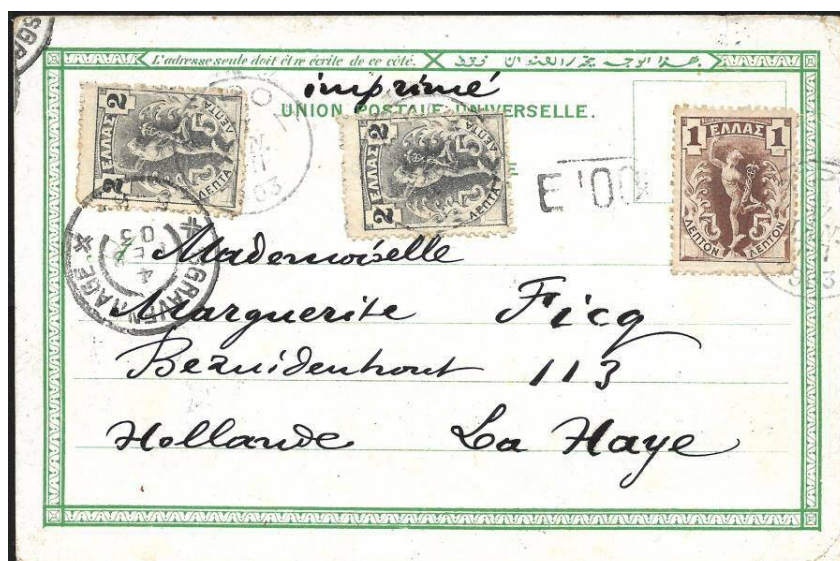 L'adresse seule doit être écrite de ce côté.
imprimé
UNION POSTALE UNIVERSELLE.
2 ΕΛΛΑΣ 2
ΛΕΠΤΑ ΛΕΠΤΑ
2 ΕΛΛΑΣ 2
ΛΕΠΤΑ ΛΕΠΤΑ
1 ΕΛΛΑΣ 1
ΛΕΠΤΟΝ ΛΕΠΤΟΝ
E'.00
GRAVENHAGE
4
FEB
03
Mademoiselle
Marguerite Ficq
Bezuidenhout 113
Hollande La Haye